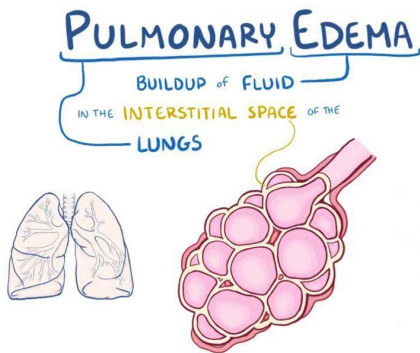 PULMONARY EDEMA
BUILDUP of FLUID
IN THE INTERSTITIAL SPACE OF THE
LUNGS